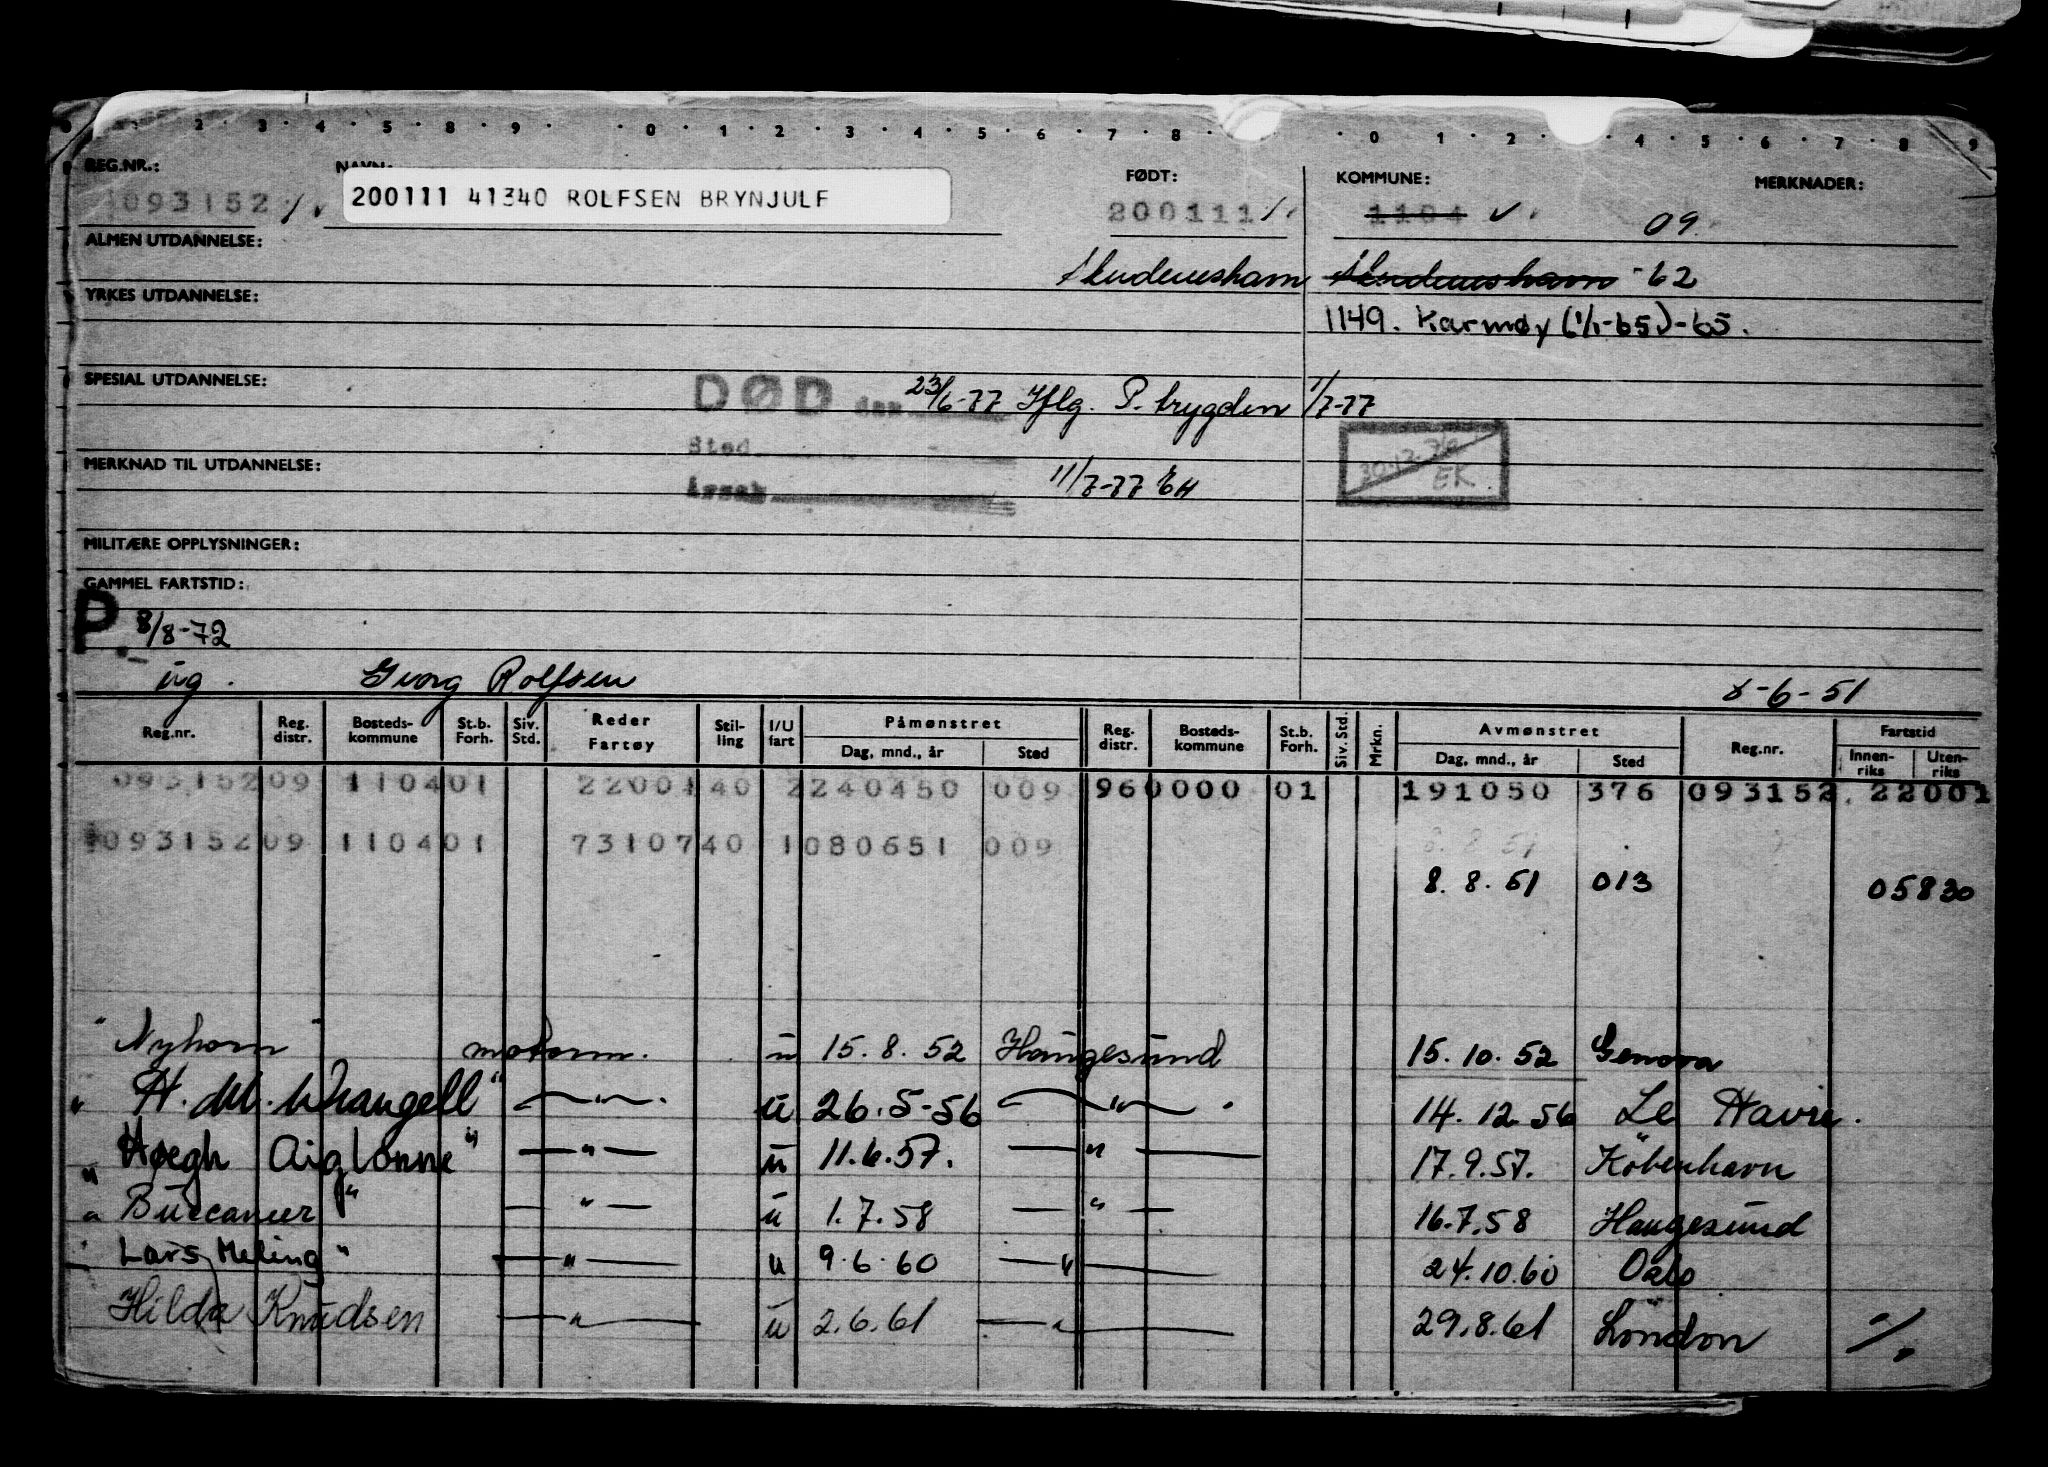 2 · 3 · 4 · 5 · 8 · 9 · · 0 · 1 · 2 · 3 · 4 · 5 · 6 · 7 · 8 · · 0 1 · 2 · 4 · 5 · 6 · 7 · 8 · 9
REG.NR.: NAVN: FØDT: KOMMUNE: MERKNADER:
093152 200111 41340 ROLFSEN BRYNJULF 200111 1104 09
ALMEN UTDANNELSE:
Skudeneshavn Skudeneshavn -62
YRKES UTDANNELSE:
1149. Karmøy (1/1-65)-65.
SPESIAL UTDANNELSE:
DØD den 23/6-77 Iflg. P. trygden 1/7-77
Sted
MERKNAD TIL UTDANNELSE: 30.12.76
Årsak 11/7-77 EH EK
MILITÆRE OPPLYSNINGER:
GAMMEL FARTSTID:
P. 8/8-72
ug. Georg Rolfsen 8-6-51
Reg.nr. Reg. distr. Bosteds- kommune St.b. Forh. Siv. Std. Reder Fartøy Stil- ling I/U fart Påmønstret Dag, mnd., år Sted Reg. distr. Bosteds- kommune St.b. Forh. Siv. Std. Mrkn. Avmønstret Dag, mnd., år Sted Reg.nr. Fartstid Innen- riks Uten- riks
093152 09 1104 01 22001 40 2 240450 009 96 0000 01 191050 376 093152 22001
093152 09 1104 01 73107 40 1 080651 009 8.8.51
8.8.51 013 05830
" Nyhorn " motorm. u 15.8.52 Haugesund 15.10.52 Genova
" H. M. Wrangell " — " — . u 26.5-56 — " — . 14.12.56 Le Havre.
" Høegh Aiglonne " — " — u 11.6.57. — " — 17.9.57. København
" Buccaneer " — " — u 1.7.58 — " — 16.7.58 Haugesund
" Lars Meling " — " — u 9.6.60 — " — 24.10.60 Oslo
Hilda Knudsen — " — u 2.6.61 — " — 29.8.61 London ./.